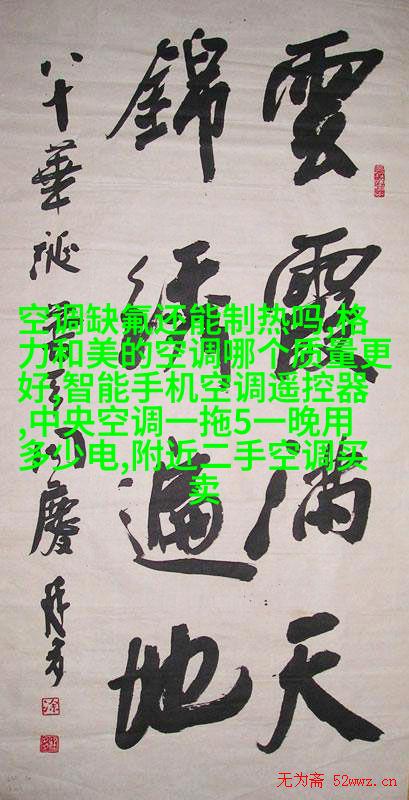 雲霞滿天
錦綉遍地
八十華誕普天同慶
空调缺氟还能制热吗,格
力和美的空调哪个质量更
好,智能手机空调遥控器
,中央空调一拖5一晚用
多少电,附近二手空调买
卖
无为斋 52wwz.cn